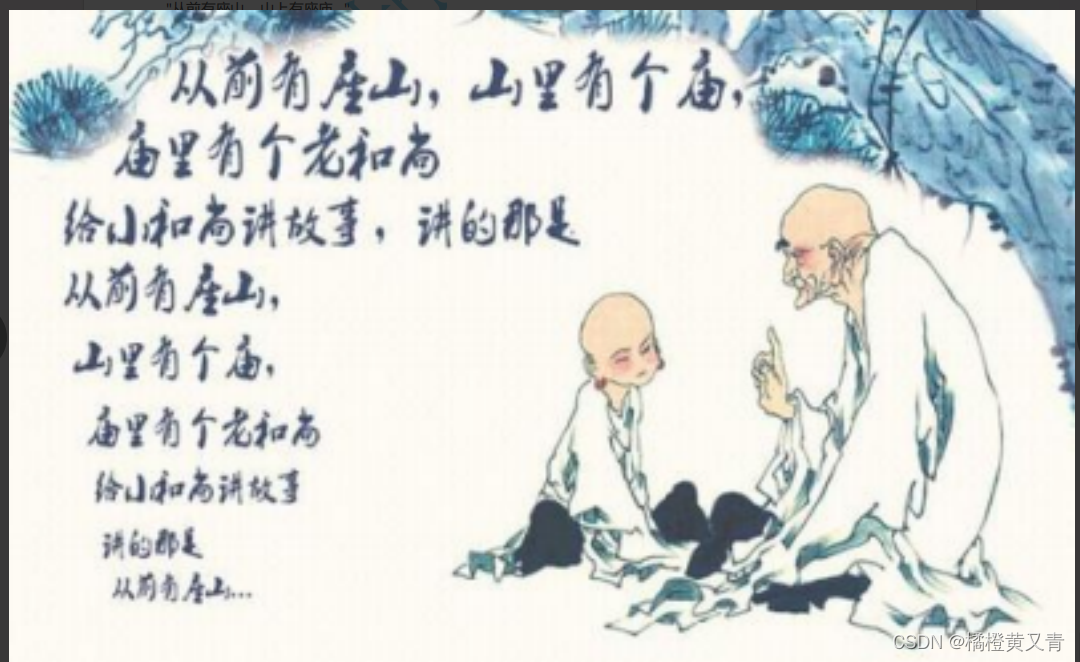 从前有座山，山里有个庙，
庙里有个老和尚
给小和尚讲故事，讲的那是
从前有座山，
山里有个庙，
庙里有个老和尚
给小和尚讲故事
讲的那是
从前有座山...
CSDN @橘橙黄又青